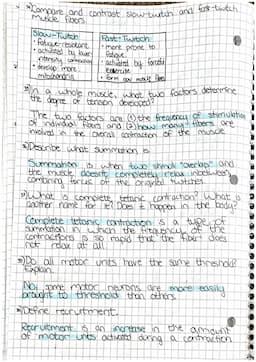 Compare and contrast slow-twitch and fast-twitch
muscle fibers
Slow-Twitch
• fatigue-resistant
• activated by lower
intensity contraction
• develop more
mitochondria
Fast-Twitch
• more prone to
fatigue
• activated by forced
exercise
• form and
In a whole muscle, what two factors determine
the degree of tension developed?
The two factors are ① the frequency of stimulation
of individual fibers and ② how many fibers are
involved in the overall contraction of the muscle
Describe what summation is
Summation is when two stimuli "overlap" and
the muscle doesn't completely relax inbetween,
combining forces of the original twitches.
What is complete tetanic contraction? What is
another name for it? Does it happen in the body?
Complete tetanic contraction is a type of
summation in which the frequency of the
contractions is so rapid that the fiber does
not relax at all
Do all motor units have the same threshold?
Explain.
No, some motor neurons are more easily
brought to threshold than others.
Define recruitment.
Recruitment is an increase in the amount
of motor units activated during a contraction